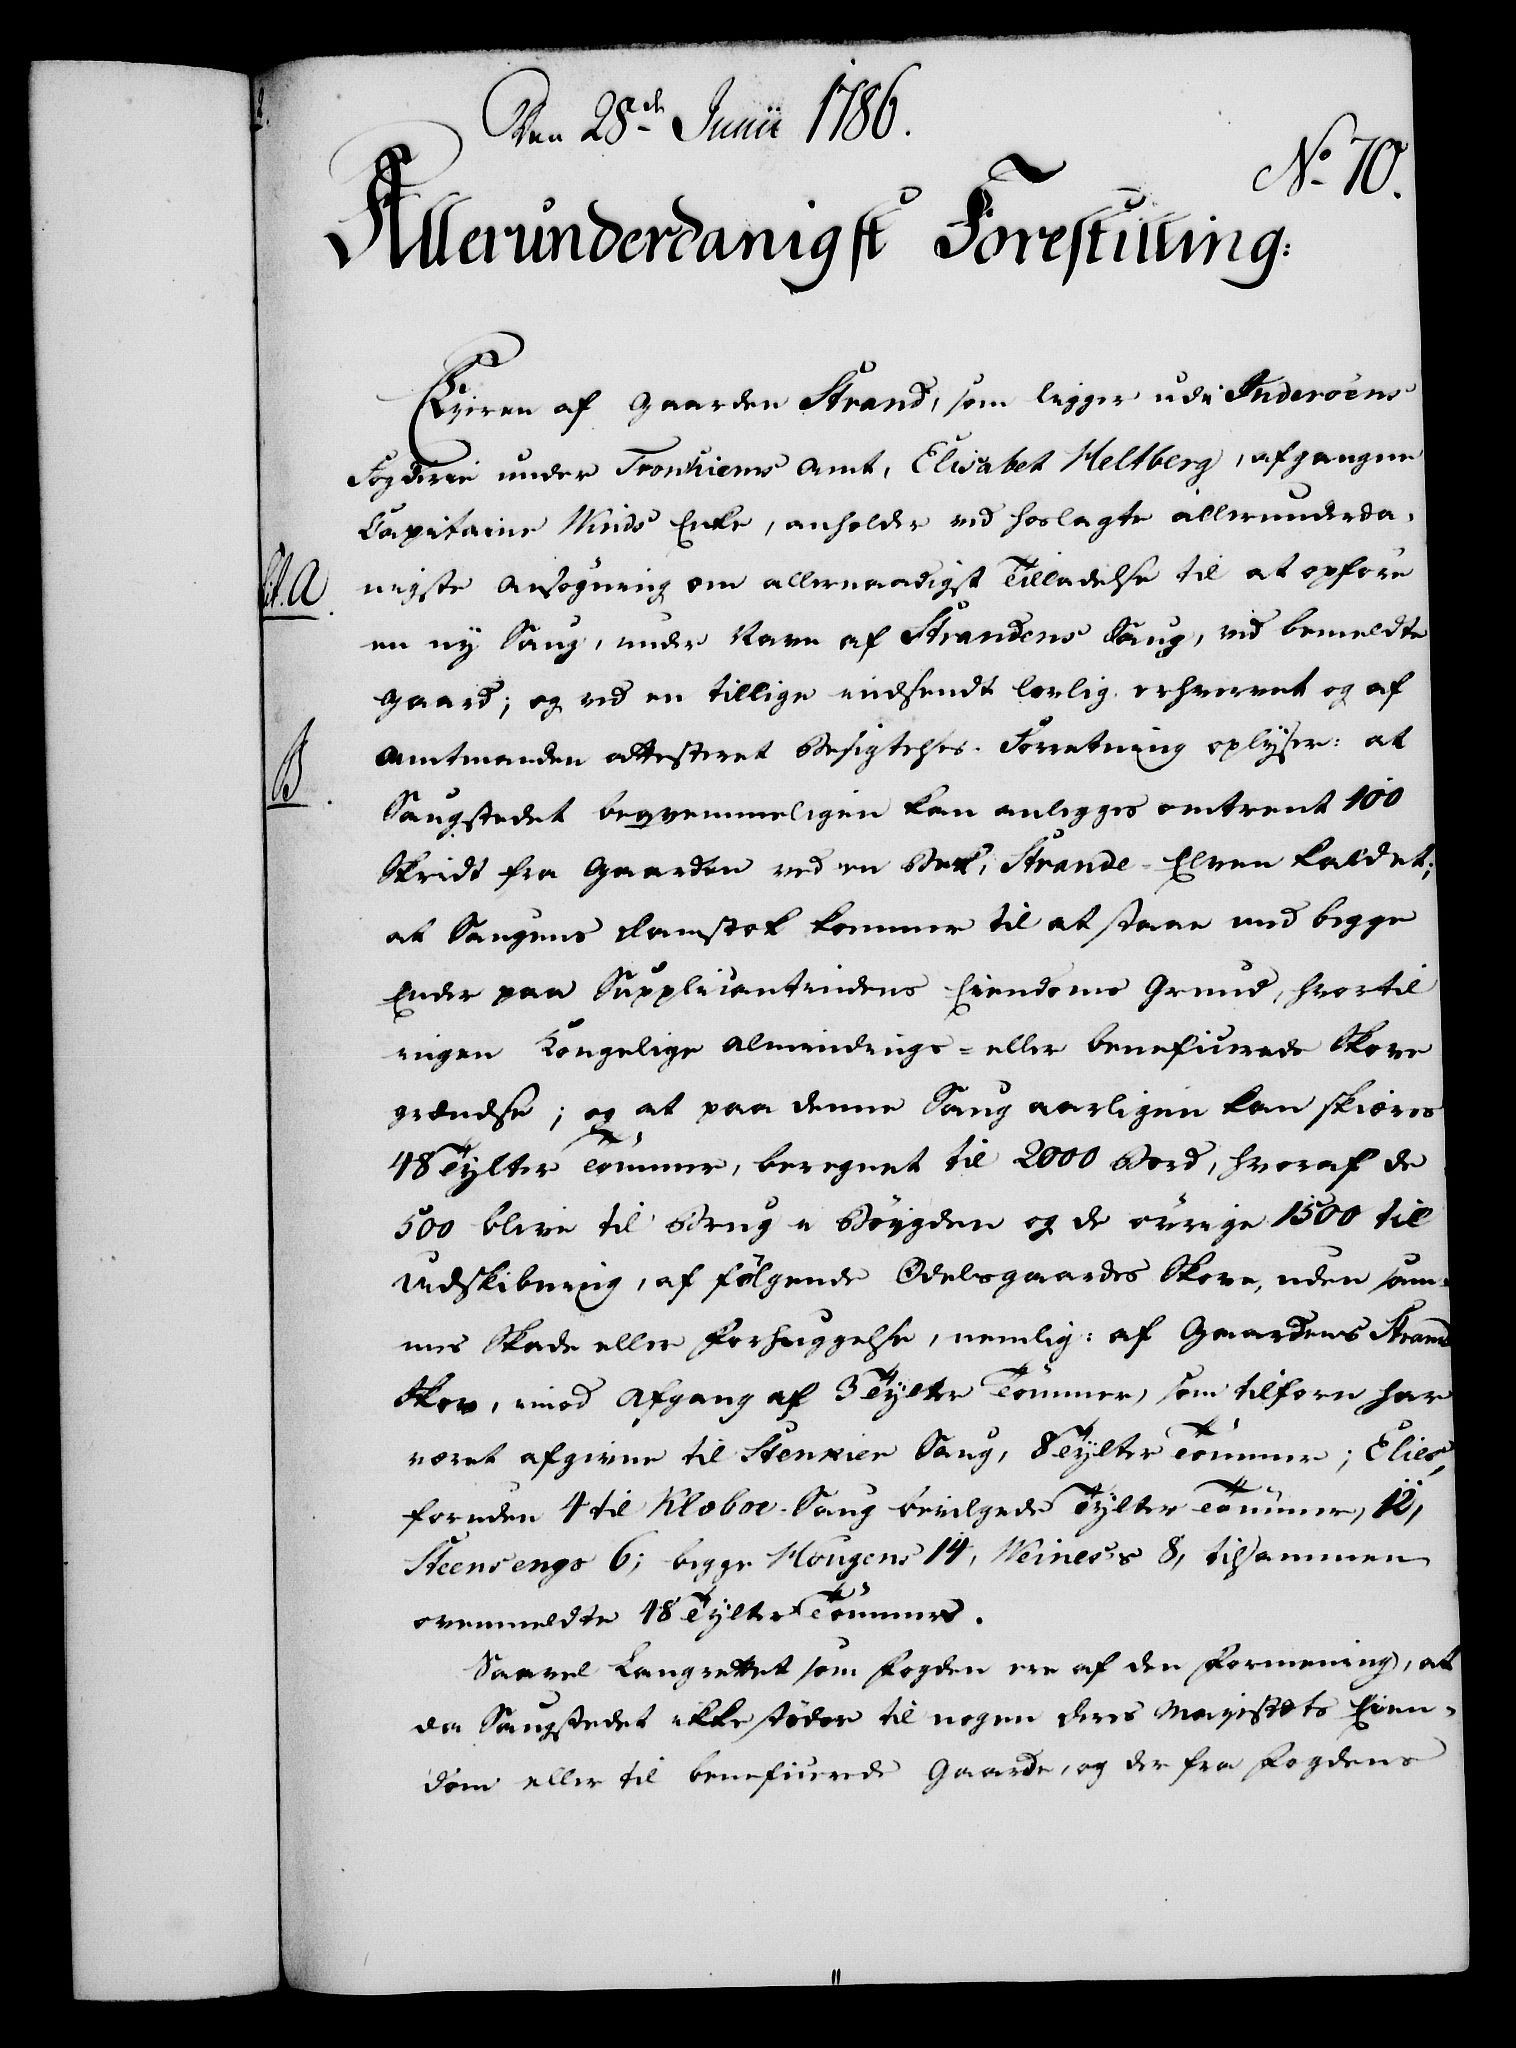 Den 28de Junii 1786.
No 70.
Allerunderdanigst Forestilling:
Eyeren af Gaarden Strand, som ligger udi Inderøens
Fogderie under Tronhiems Amt, Elisabet Heltberg, afgangne
Capitaine Winds Enke, anholder ved hoslagte allerunderda-
Lit. A. nigste Ansøgning om allernaadigst Tilladelse til at opføre
en ny Saug, under Navn af Strandens Saug, ved bemeldte
Gaard; og ved en tillige indsendt lovlig erhvervet og af
B. Amtmanden attesteret Besigtelses-Forretning oplyser: at
Saugstedet beqvemmeligen kan anlegges omtrent 100
Skridt fra Gaarden ved en Bek, Strande-Elven kaldet;
at Saugens Damstok kommer til at staae med begge
Ender paa Supplicantindens Eiendoms Grund, hvortil
ingen Kongelige Almindings- eller beneficerede Skove
grændse; og at paa denne Saug aarligen kan skiæres
48 Tylter Tømmer, beregnet til 2000 Bord, hvoraf de
500 blive til Brug i Bøygden og de øvrige 1500 til
Udskibning, af følgende Odelsgaardes Skove, uden sam-
mes Skade eller Forhuggelse, nemlig: af Gaardens Strand
Skov, imod Afgang af 3 Tylter Tømmer, som tilforn har
været afgivne til Stenkier Saug, 8 Tylter Tømmer; Elies,
foruden 4 til Kleboe-Saug bevilgede Tylter Tømmer, 12,
Steensengs 6; begge Hougens 14, Weines's 8, tilsammen
ovenmeldte 48 Tylter Tømmer.
Saavel Laugrettet som Fogden ere af den Formening, at
da Saugstedet ikke støder til nogen Deres Majestæts Eien-
dom eller til beneficerede Gaarde, og der fra Fogdens